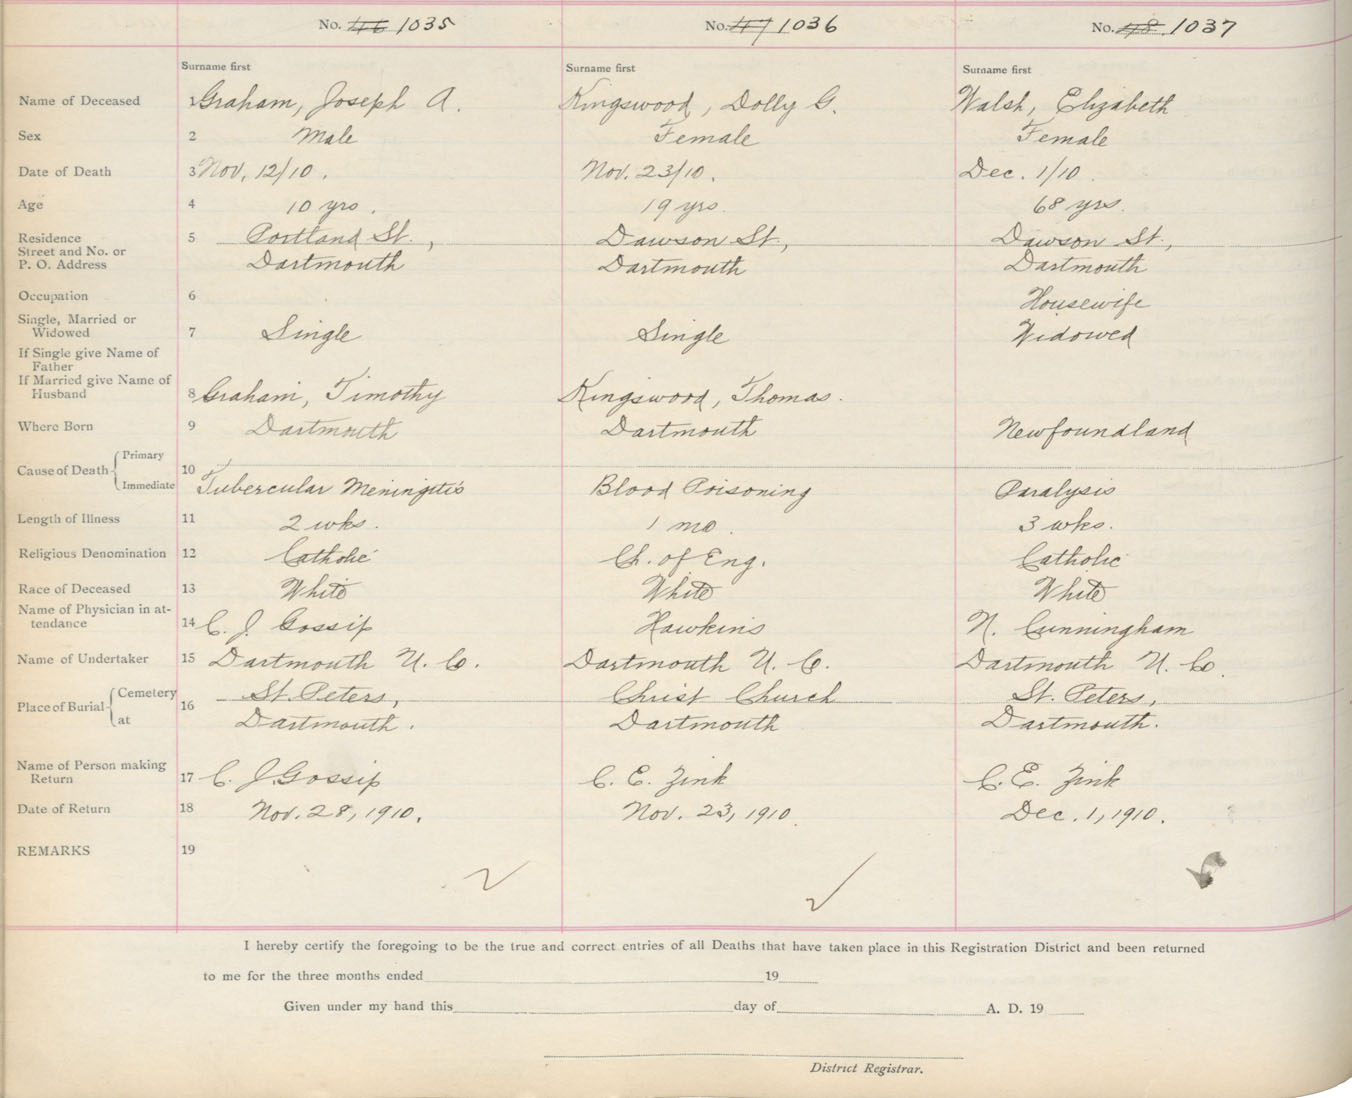 No. 46 1035 No. 47 1036 No. 48 1037
Surname first Surname first Surname first
Name of Deceased 1 Graham, Joseph A. Kingswood, Dolly G. Walsh, Elizabeth
Sex 2 Male Female Female
Date of Death 3 Nov. 12/10. Nov. 23/10. Dec. 1/10.
Age 4 10 yrs. 19 yrs. 68 yrs.
Residence 5 Portland St., Dawson St., Dawson St.,
Street and No. or
P. O. Address Dartmouth Dartmouth Dartmouth
Occupation 6 Housewife
Single, Married or
Widowed 7 Single Single Widowed
If Single give Name of
Father
If Married give Name of
Husband 8 Graham, Timothy Kingswood, Thomas.
Where Born 9 Dartmouth Dartmouth Newfoundland
Primary
Cause of Death 10
Immediate Tubercular Meningitis Blood Poisoning Paralysis
Length of Illness 11 2 wks. 1 mo. 3 wks.
Religious Denomination 12 Catholic Ch. of Eng. Catholic
Race of Deceased 13 White White White
Name of Physician in at-
tendance 14 C. J. Gossip Hawkins N. Cunningham
Name of Undertaker 15 Dartmouth U. Co. Dartmouth U. C. Dartmouth U. Co.
Cemetery St. Peters, Christ Church St. Peters,
Place of Burial 16
at Dartmouth. Dartmouth Dartmouth.
Name of Person making
Return 17 C. J. Gossip C. E. Zink C. E. Zink
Date of Return 18 Nov. 28, 1910. Nov. 23, 1910. Dec. 1, 1910.
REMARKS 19
I hereby certify the foregoing to be the true and correct entries of all Deaths that have taken place in this Registration District and been returned
to me for the three months ended 19
Given under my hand this day of A. D. 19
District Registrar.